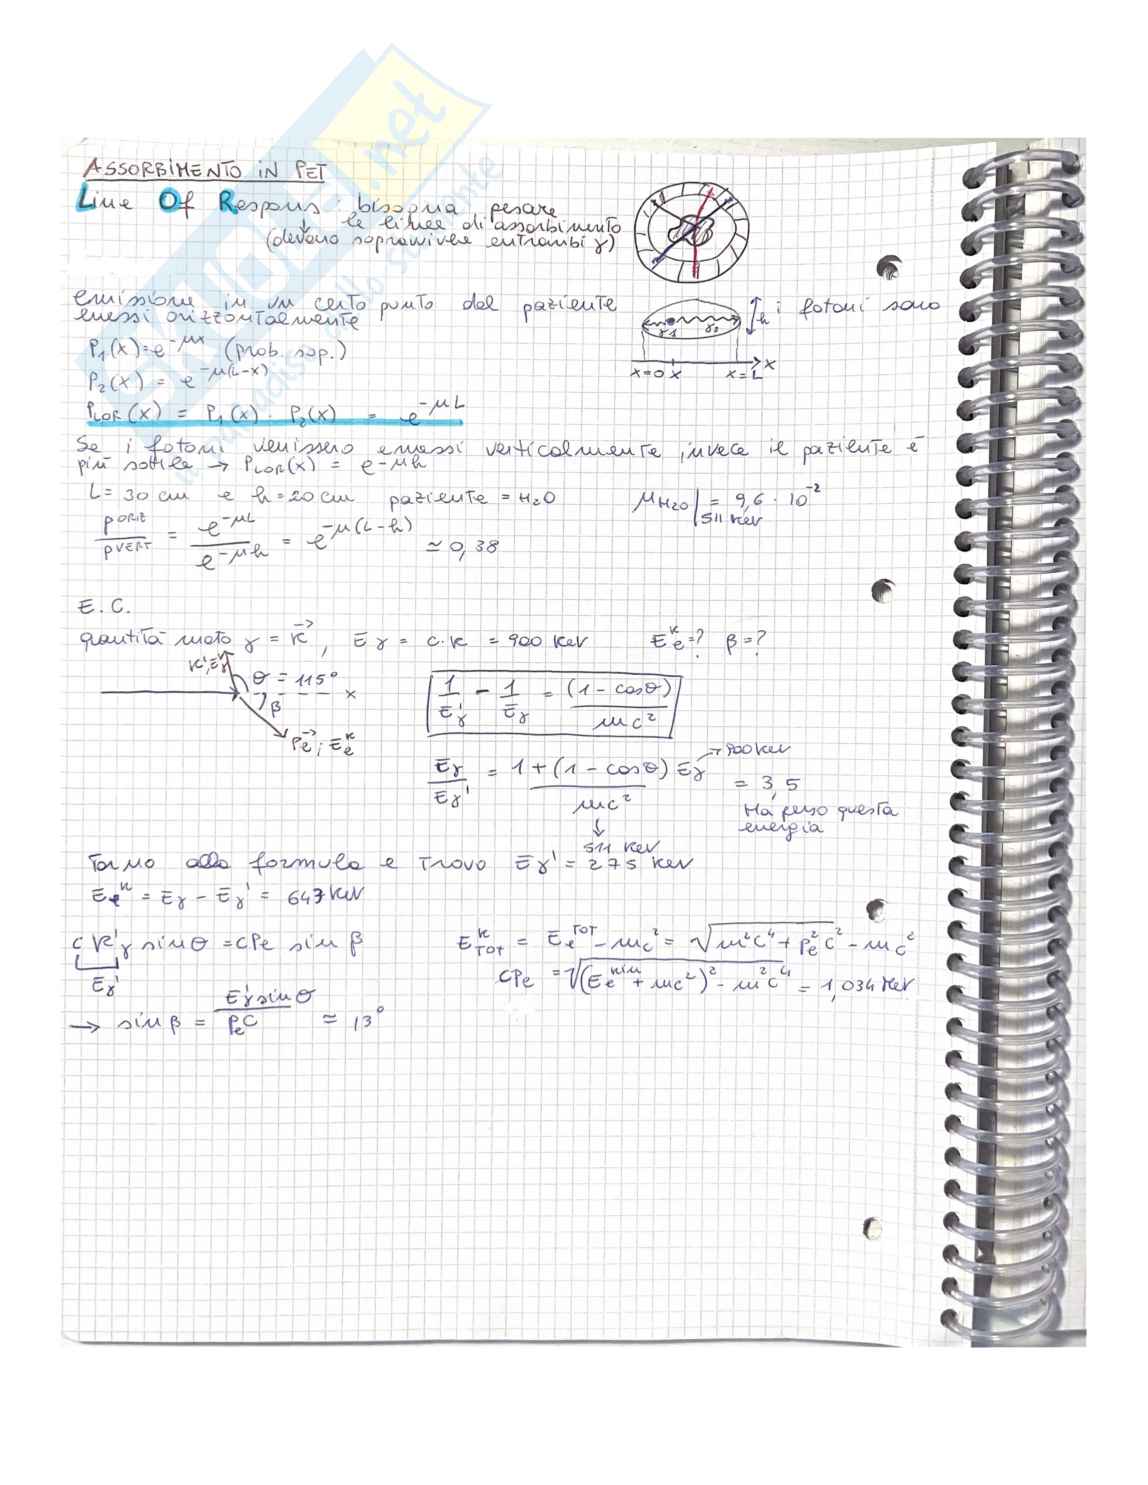 ASSORBIMENTO IN PET
Line Of Respons: bisogna pesare
le linee di assorbimento
(devono sopravvivere entrambi γ)
emissione in un certo punto del paziente i fotoni sono
emessi orizzontalmente
h
γ1 γ2
x=0 x x=L x
P₁(x)=e^-μx (prob. sop.)
P₂(x) = e^-μ(L-x)
PLOR(x) = P₁(x) · P₂(x) = e^-μL
Se i fotoni venissero emessi verticalmente, invece il paziente è
più sottile → PLOR(x) = e^-μh
L= 30 cm e h=20 cm paziente = H₂O μH₂O|511 keV = 9,6 · 10^-2
P^ORIZ / P^VERT = e^-μL / e^-μh = e^-μ(L-h) ≃ 0,38
E.C.
quantità moto γ = K⃗, Eγ = c·k = 900 KeV Ee^k=? β=?
K', Eγ'
θ = 115°
β
x
Pe⃗, Ee^k
1/Eγ' - 1/Eγ = (1-cosθ)/mc²
Eγ/Eγ' = 1+(1-cosθ) Eγ / mc² = 3,5
→ 900 KeV
Ha perso questa
energia
↓
511 KeV
Torno alla formula e trovo Eγ' = 275 KeV
Ee^k = Eγ - Eγ' = 647 KeV
c K'γ sinθ = cPe sin β
Eγ'
E^K TOT = Ee^TOT - mc² = √m²c⁴ + Pe²c² - mc²
cPe = √(Ee^kin + mc²)² - m²c⁴ = 1,034 MeV
→ sin β = Eγ' sin θ / PeC ≃ 13°